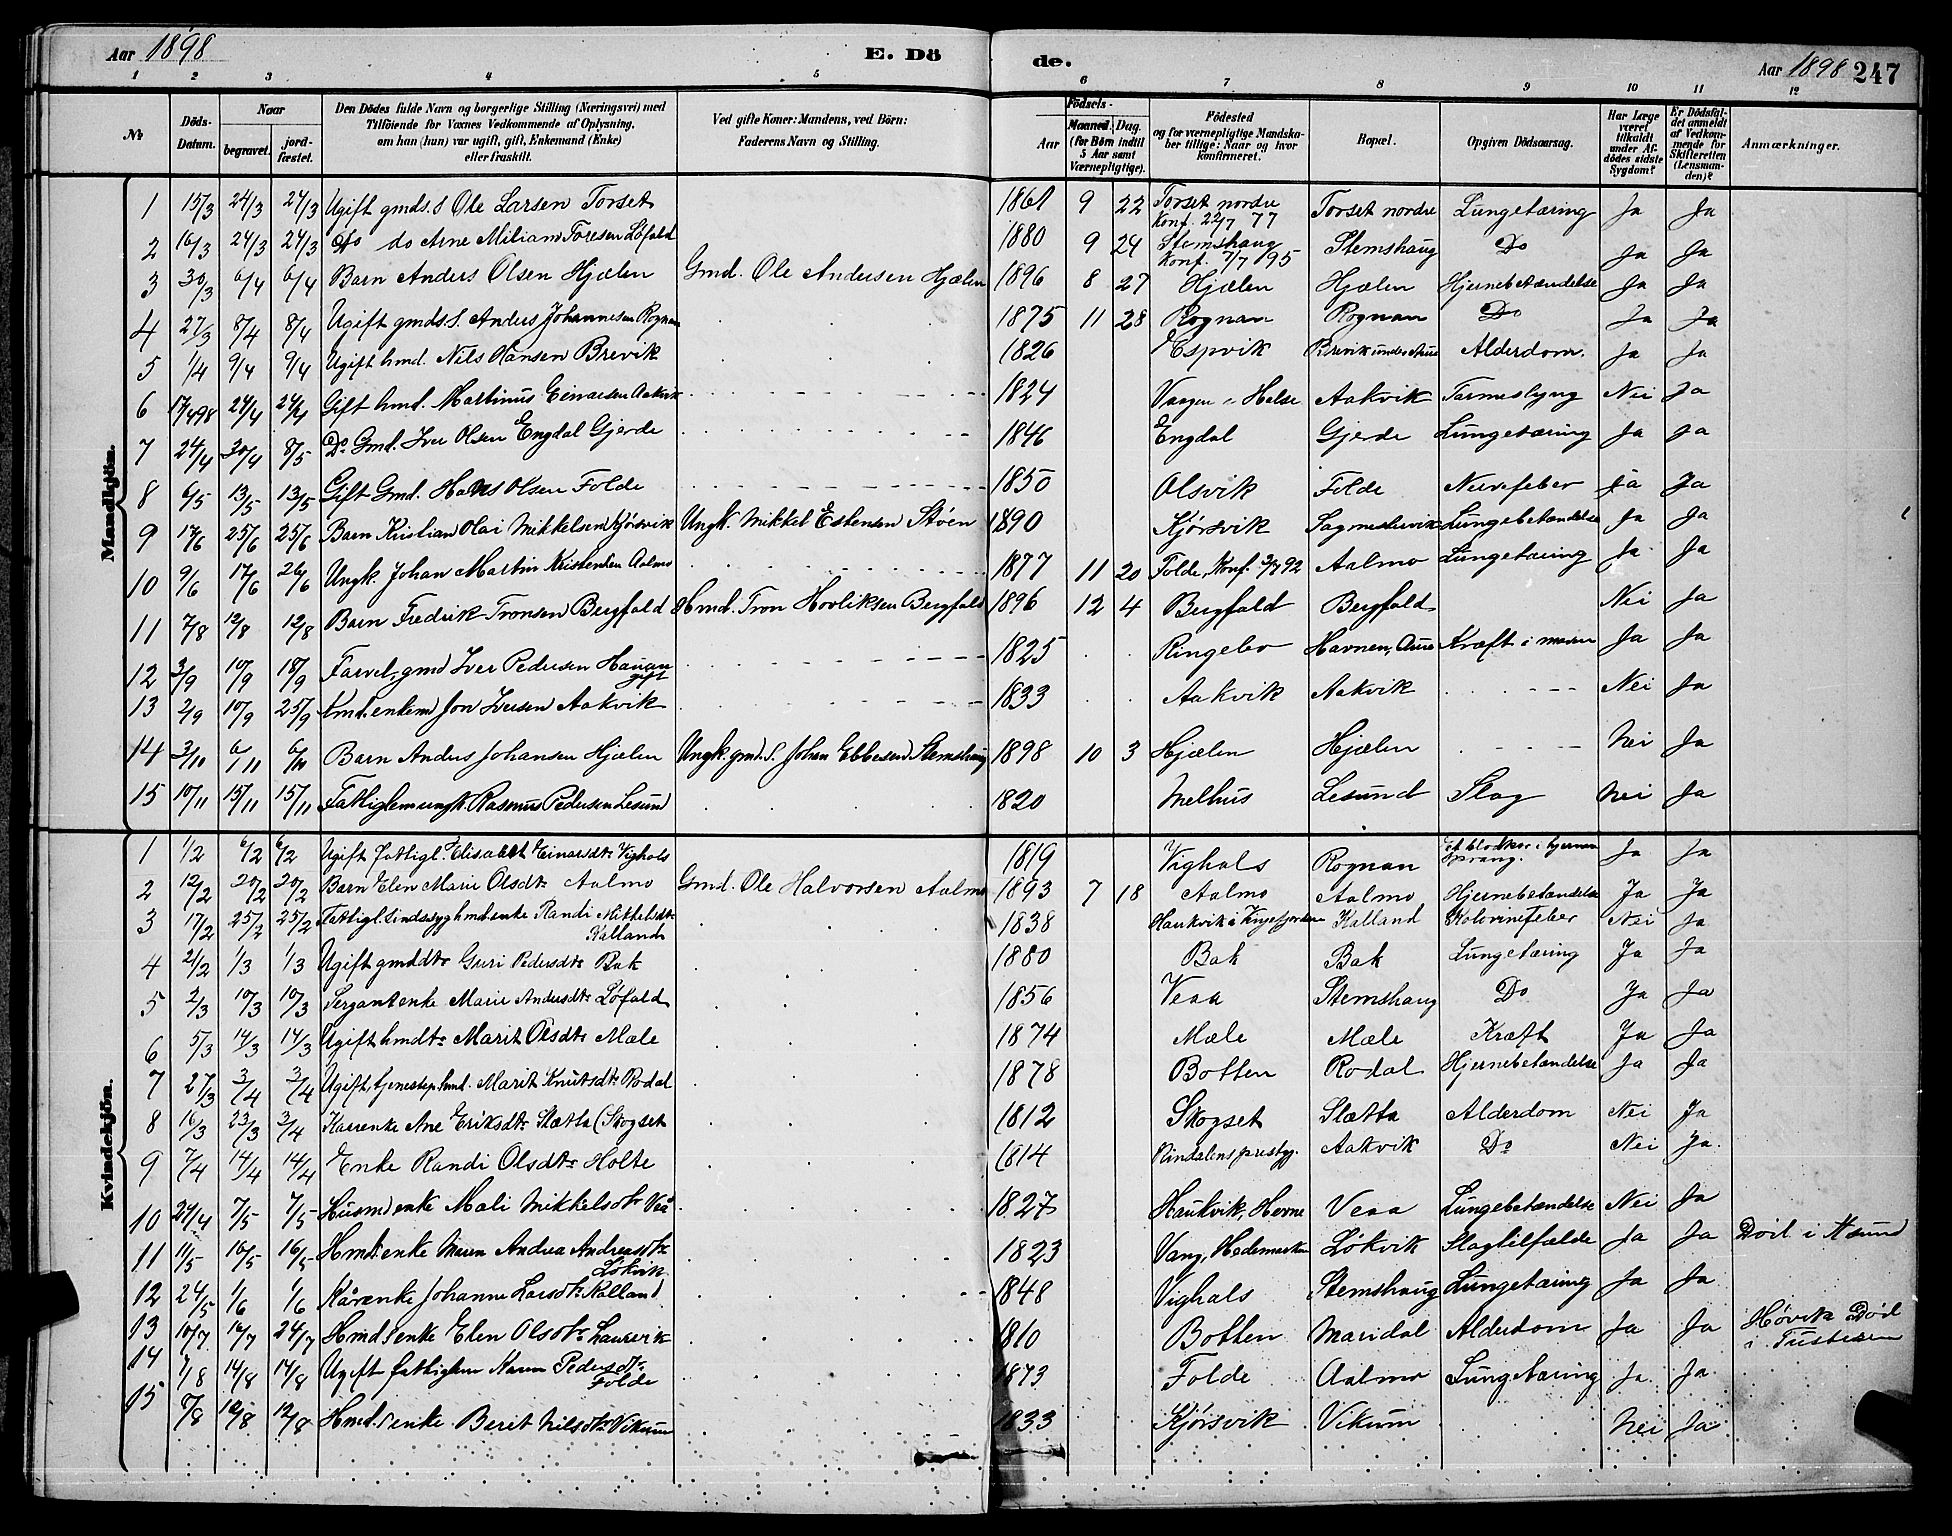 Aar 1898 E. Dö de. Aar 1898 247
1 2 3 4 5 6 7 8 9 10 11 12
№ Döds-Datum. Naar begravet. jordfæstet. Den Dödes fulde Navn og borgerlige Stilling (Næringsvei) med Tilföiende for Voxnes Vedkommende af Oplysning, om han (hun) var ugift, gift, Enkemand (Enke) eller fraskilt. Ved gifte Koner: Mandens, ved Börn: Faderens Navn og Stilling. Födsels- Aar Maaned. Dag. (for Börn indtil 5 Aar samt Værnepligtige). Födested og for værnepligtige Mandskaber tillige: Naar og hvor konfirmeret. Bopæl. Opgiven Dödsaarsag. Har Læge været tilkaldt under Afdödes sidste Sygdom? Er Dödsfaldet anmeldt af Vedkommende for Skifteretten (Lensmanden)? Anmærkninger.
Mandkjön.
1 15/3 24/3 24/3 Ugift gmds. S Ole Larsen Torset 1861 9 22 Torset nordre Konf. 22/7 77 Torset nordre Lungetæring Ja Ja
2 16/3 24/3 24/3 do do Arne Miliam Toresen Løfald 1880 9 24 Stemshaug Konf. 7/7 95 Stemshaug Do Ja Ja
3 30/3 6/4 6/4 Barn Anders Olsen Hjælen Gmd. Ole Andersen Hjælen 1896 8 27 Hjælen Hjælen Hjernebetændelse Ja Ja
4 27/3 8/4 8/4 Ugift gmds. S. Anders Johannesen Rognan 1875 11 28 Rognan Rognan Do Ja Ja
5 1/4 9/4 9/4 Ugift hmd. Nils Hansen Brevik 1826 Espvik Brevik under Aure Alderdom. Ja Ja
6 17/4 98 24/4 24/4 Gift hmd. Martinus Einarsen Aakvik 1824 Vaagen i Halse Aakvik Tarmeslyng Nei Ja
7 24/4 30/4 8/5 Do Gmd. Iver Olsen Engdal Gjerde 1846 Engdal Gjerde Lungetæring Ja Ja
8 6/5 13/5 13/5 Gift Gmd. Hans Olsen Folde 1850 Olsvik Folde Nervefeber Ja Ja
9 17/6 25/6 25/6 Barn Kristian Olai Mikkelsen Kjørsvik Ungk. Mikkel Estensen Støen 1890 Kjørsvik Sagmestervik Lungebetændelse Ja Ja
10 9/6 17/6 26/6 Ungk. Johan Martin Kristensen Aalmo 1877 11 20 Folde, Konf. 92 Aalmo Lungetæring Ja Ja
11 7/8 12/8 12/8 Barn Fredrik Tronsen Bergfald Hmd. Tron Hovliksen Bergfald 1896 12 4 Bergfald Bergfald Nei Ja
12 3/9 10/9 18/9 Farvel. gmd Iver Pedersen Haugan gift 1825 Ringebo Havnen, Aure Kræft i maven Ja Ja
13 2/9 10/9 25/9 Kmd. enkem. Jon Iversen Aakvik 1833 Aakvik Aakvik Nei Ja
14 3/10 6/11 6/11 Barn Anders Johansen Hjælen Ungk. gmd. S. Johan Ebbesen Stemshaug 1898 10 3 Hjælen Hjælen Nei Ja
15 10/11 15/11 15/11 Fattiglem ungk. Rasmus Pedersen Lesund 1820 Melhus Lesund Slag Nei Ja
Kvindekjön.
1 1/2 6/2 6/2 Ugift fattigl. Elisabet Einarsdtr Vighals 1819 Vighals Rognan Et blodkar i hjernen sprang. Ja Ja
2 12/2 20/2 20/2 Barn Elen Marie Olsdtr Aalmo Gmd. Ole Halvorsen Aalmo 1893 7 18 Aalmo Aalmo Hjernebetændelse Ja Ja
3 17/2 25/2 25/2 Fattigl. sindssyg hmd. enke Randi Mikkelsdtr Kalland 1838 Haukvik i Vinjefjorden Kalland Kolorinefeber Nei Ja
4 21/2 1/3 1/3 Ugift gmddtr Guri Pedersdtr Bak 1880 Bak Bak Lungetæring Ja Ja
5 2/3 10/3 10/3 Sergantenke Marie Andersdtr Løfald 1856 Veaa Stemshaug Do Ja Ja
6 5/3 14/3 14/3 Ugift hmdtr Marit Olsdtr Mæle 1874 Mæle Mæle Kræft Ja Ja
7 27/3 3/4 3/4 Ugift tjenestep. hmd. Marit Knutsdtr Rodal 1878 Botten Rodal Hjernebetændelse Ja Ja
8 16/3 23/3 3/4 Kaarenke Ane Eriksdtr Slætta (Skogset 1812 Skogset Slætta Alderdom Nei Ja
9 7/4 14/4 14/4 Enke Randi Olsdtr Holte 1814 Rindalens prestgj. Aakvik Do Nei Ja.
10 24/4 7/5 7/5 Husmd enke Mali Mikkelsdtr Veå 1827 Haukvik, Hevne Veaa Lungebetændelse Nei Ja
11 11/5 16/5 16/5 Hmd. enke Maren Andrea Andreasdtr Løkvik 1823 Vang, Hedemarken Løkvik Slagtilfælde Ja Ja Död i Xsund
12 24/5 1/6 1/6 Kårenke Johanne Larsdtr Kalland 1848 Vighals Stemshaug Lungetæring Ja Ja
13 10/7 16/7 24/7 Hmds enke Elen Olsdtr Laursvik 1810 Botten Maridal Alderdom Ja Ja Høvik Död i Tusteren
14 7/8 14/8 14/8 Ugift fattiglem Karen Pedersdtr Folde 1873 Folde Aalmo Lungetæring Ja Ja
15 7/8 12/8 12/8 Hmds enke Beret Nilsdtr Vikum 1833 Kjørsvik Vikum Nei Ja